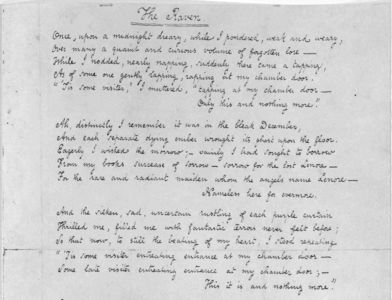 The Raven
Once, upon a midnight dreary, while I pondered, weak and weary,
Over many a quaint and curious volume of forgotten lore —
While I nodded, nearly napping, suddenly there came a tapping,
As of some one gently rapping, rapping at my chamber door.
"'Tis some visiter," I muttered, "tapping at my chamber door —
Only this and nothing more."
Ah, distinctly I remember it was in the bleak December,
And each separate dying ember wrought its ghost upon the floor.
Eagerly I wished the morrow; — vainly I had sought to borrow
From my books surcease of sorrow — sorrow for the lost Lenore —
For the rare and radiant maiden whom the angels name Lenore —
Nameless here for evermore.
And the silken, sad, uncertain rustling of each purple curtain
Thrilled me, filled me with fantastic terrors never felt before;
So that now, to still the beating of my heart, I stood repeating
"'Tis some visiter entreating entrance at my chamber door —
Some late visiter entreating entrance at my chamber door; —
This it is and nothing more."